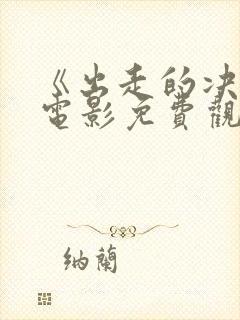 《出走的决
電影免費觀
纳蘭